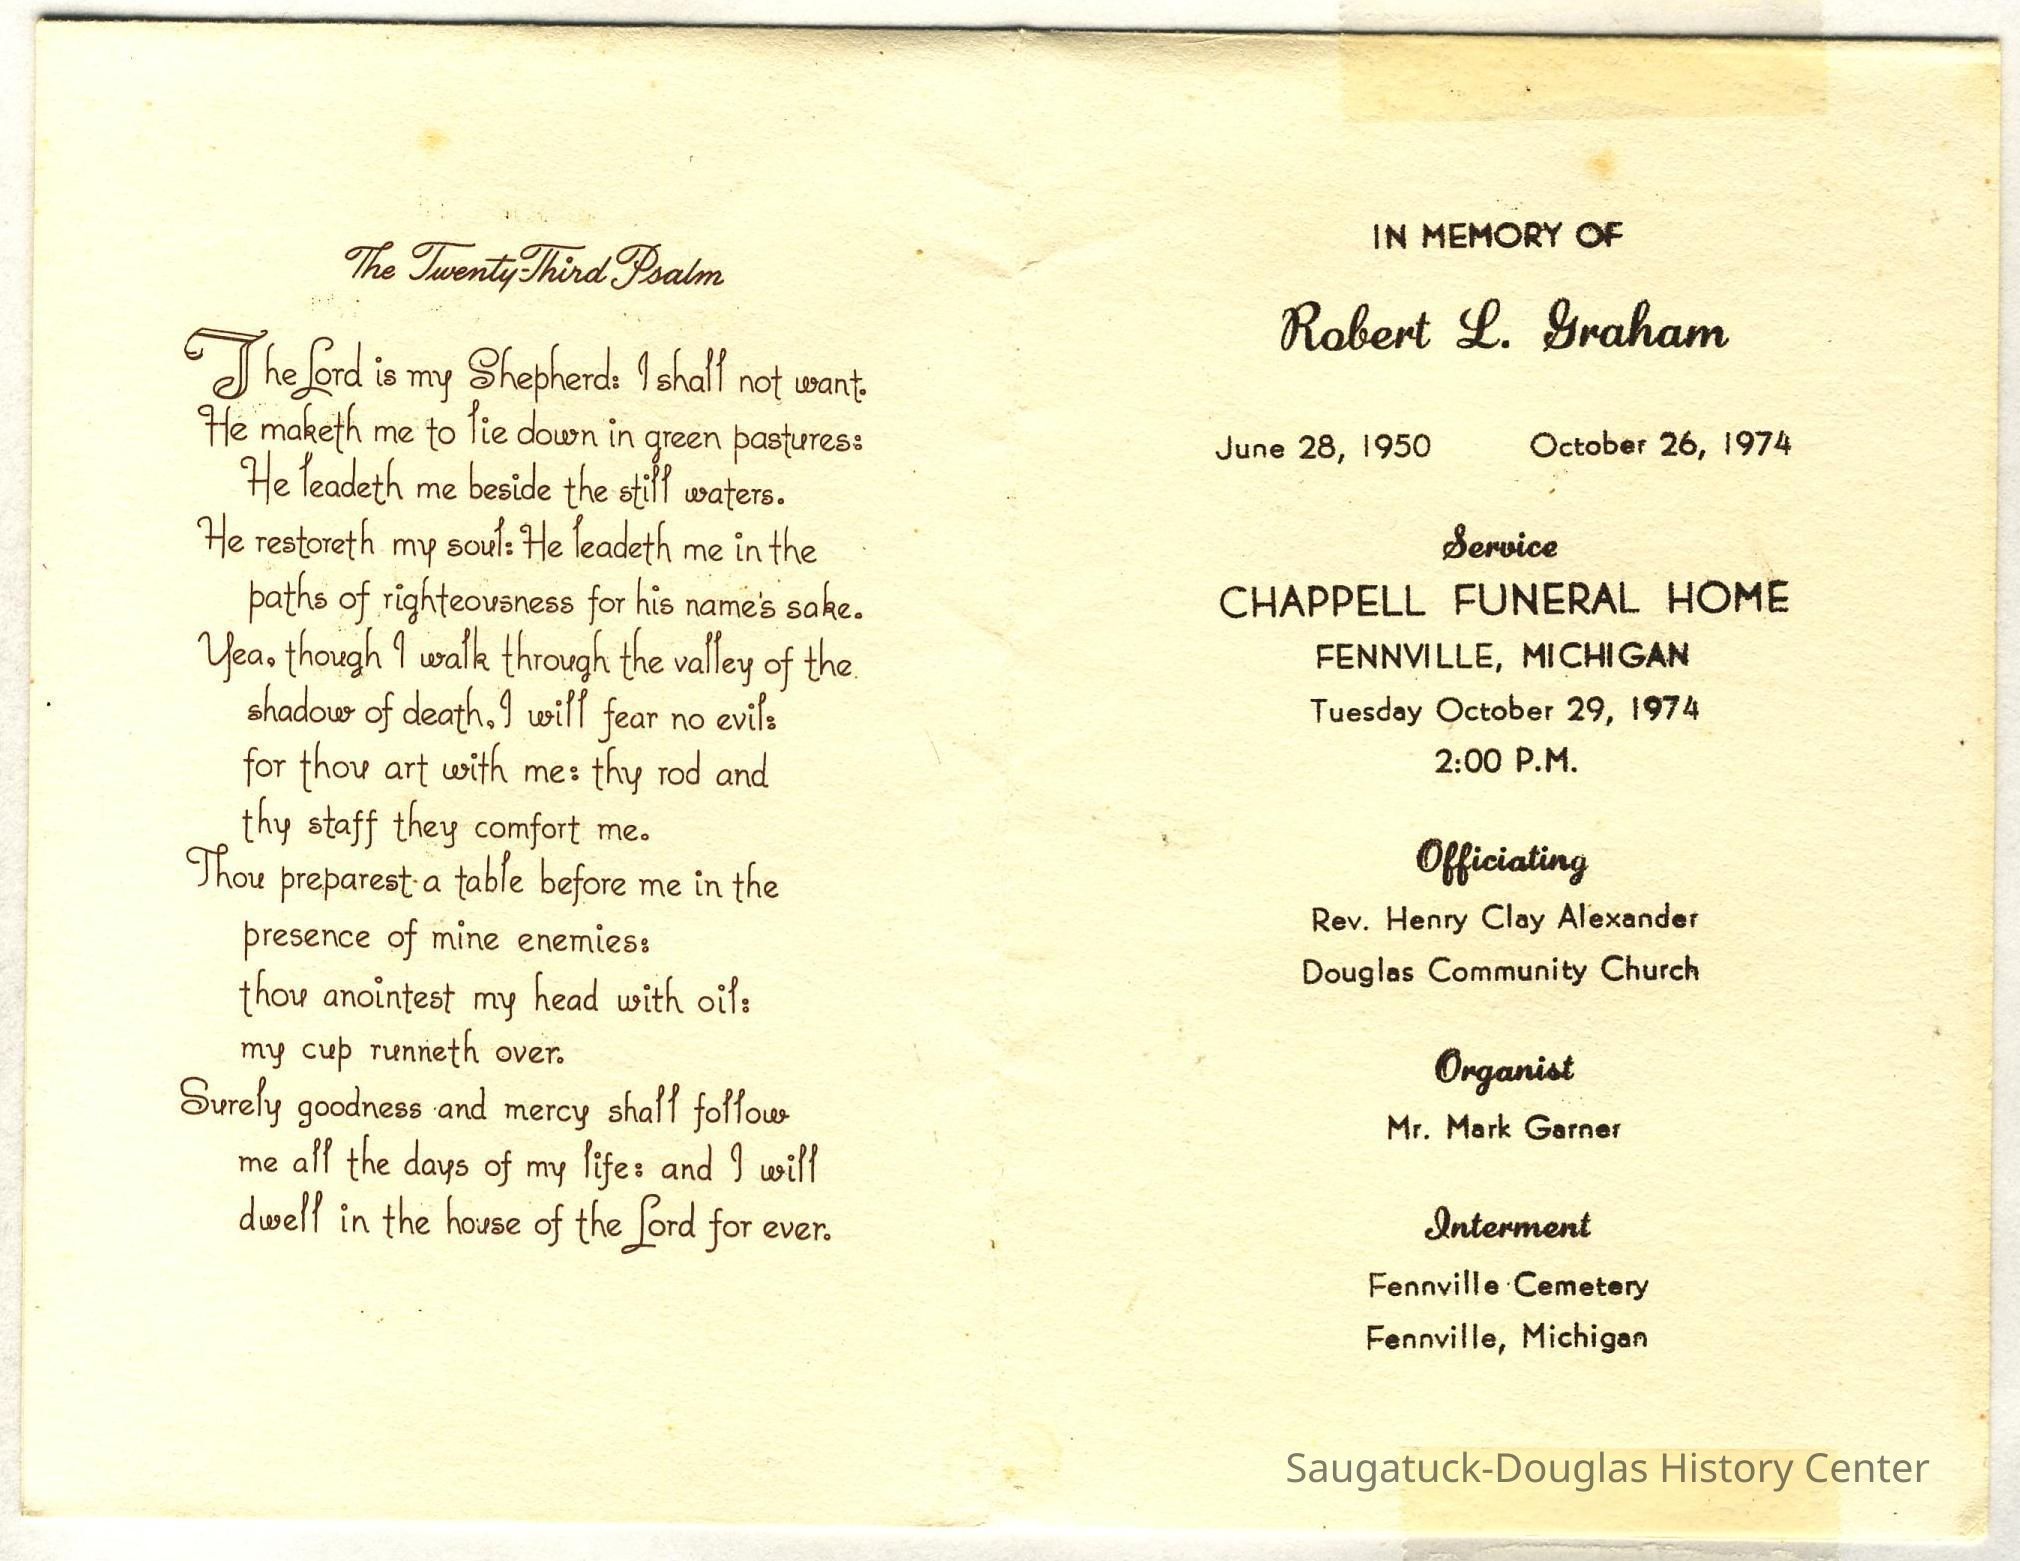 The Twenty-Third Psalm
The Lord is my Shepherd: I shall not want.
He maketh me to lie down in green pastures:
He leadeth me beside the still waters.
He restoreth my soul: He leadeth me in the
paths of righteousness for his name's sake.
Yea, though I walk through the valley of the
shadow of death, I will fear no evil:
for thou art with me: thy rod and
thy staff they comfort me.
Thou preparest a table before me in the
presence of mine enemies:
thou anointest my head with oil:
my cup runneth over.
Surely goodness and mercy shall follow
me all the days of my life: and I will
dwell in the house of the Lord for ever.
IN MEMORY OF
Robert L. Graham
June 28, 1950 October 26, 1974
Service
CHAPPELL FUNERAL HOME
FENNVILLE, MICHIGAN
Tuesday October 29, 1974
2:00 P.M.
Officiating
Rev. Henry Clay Alexander
Douglas Community Church
Organist
Mr. Mark Garner
Interment
Fennville Cemetery
Fennville, Michigan
Saugatuck-Douglas History Center